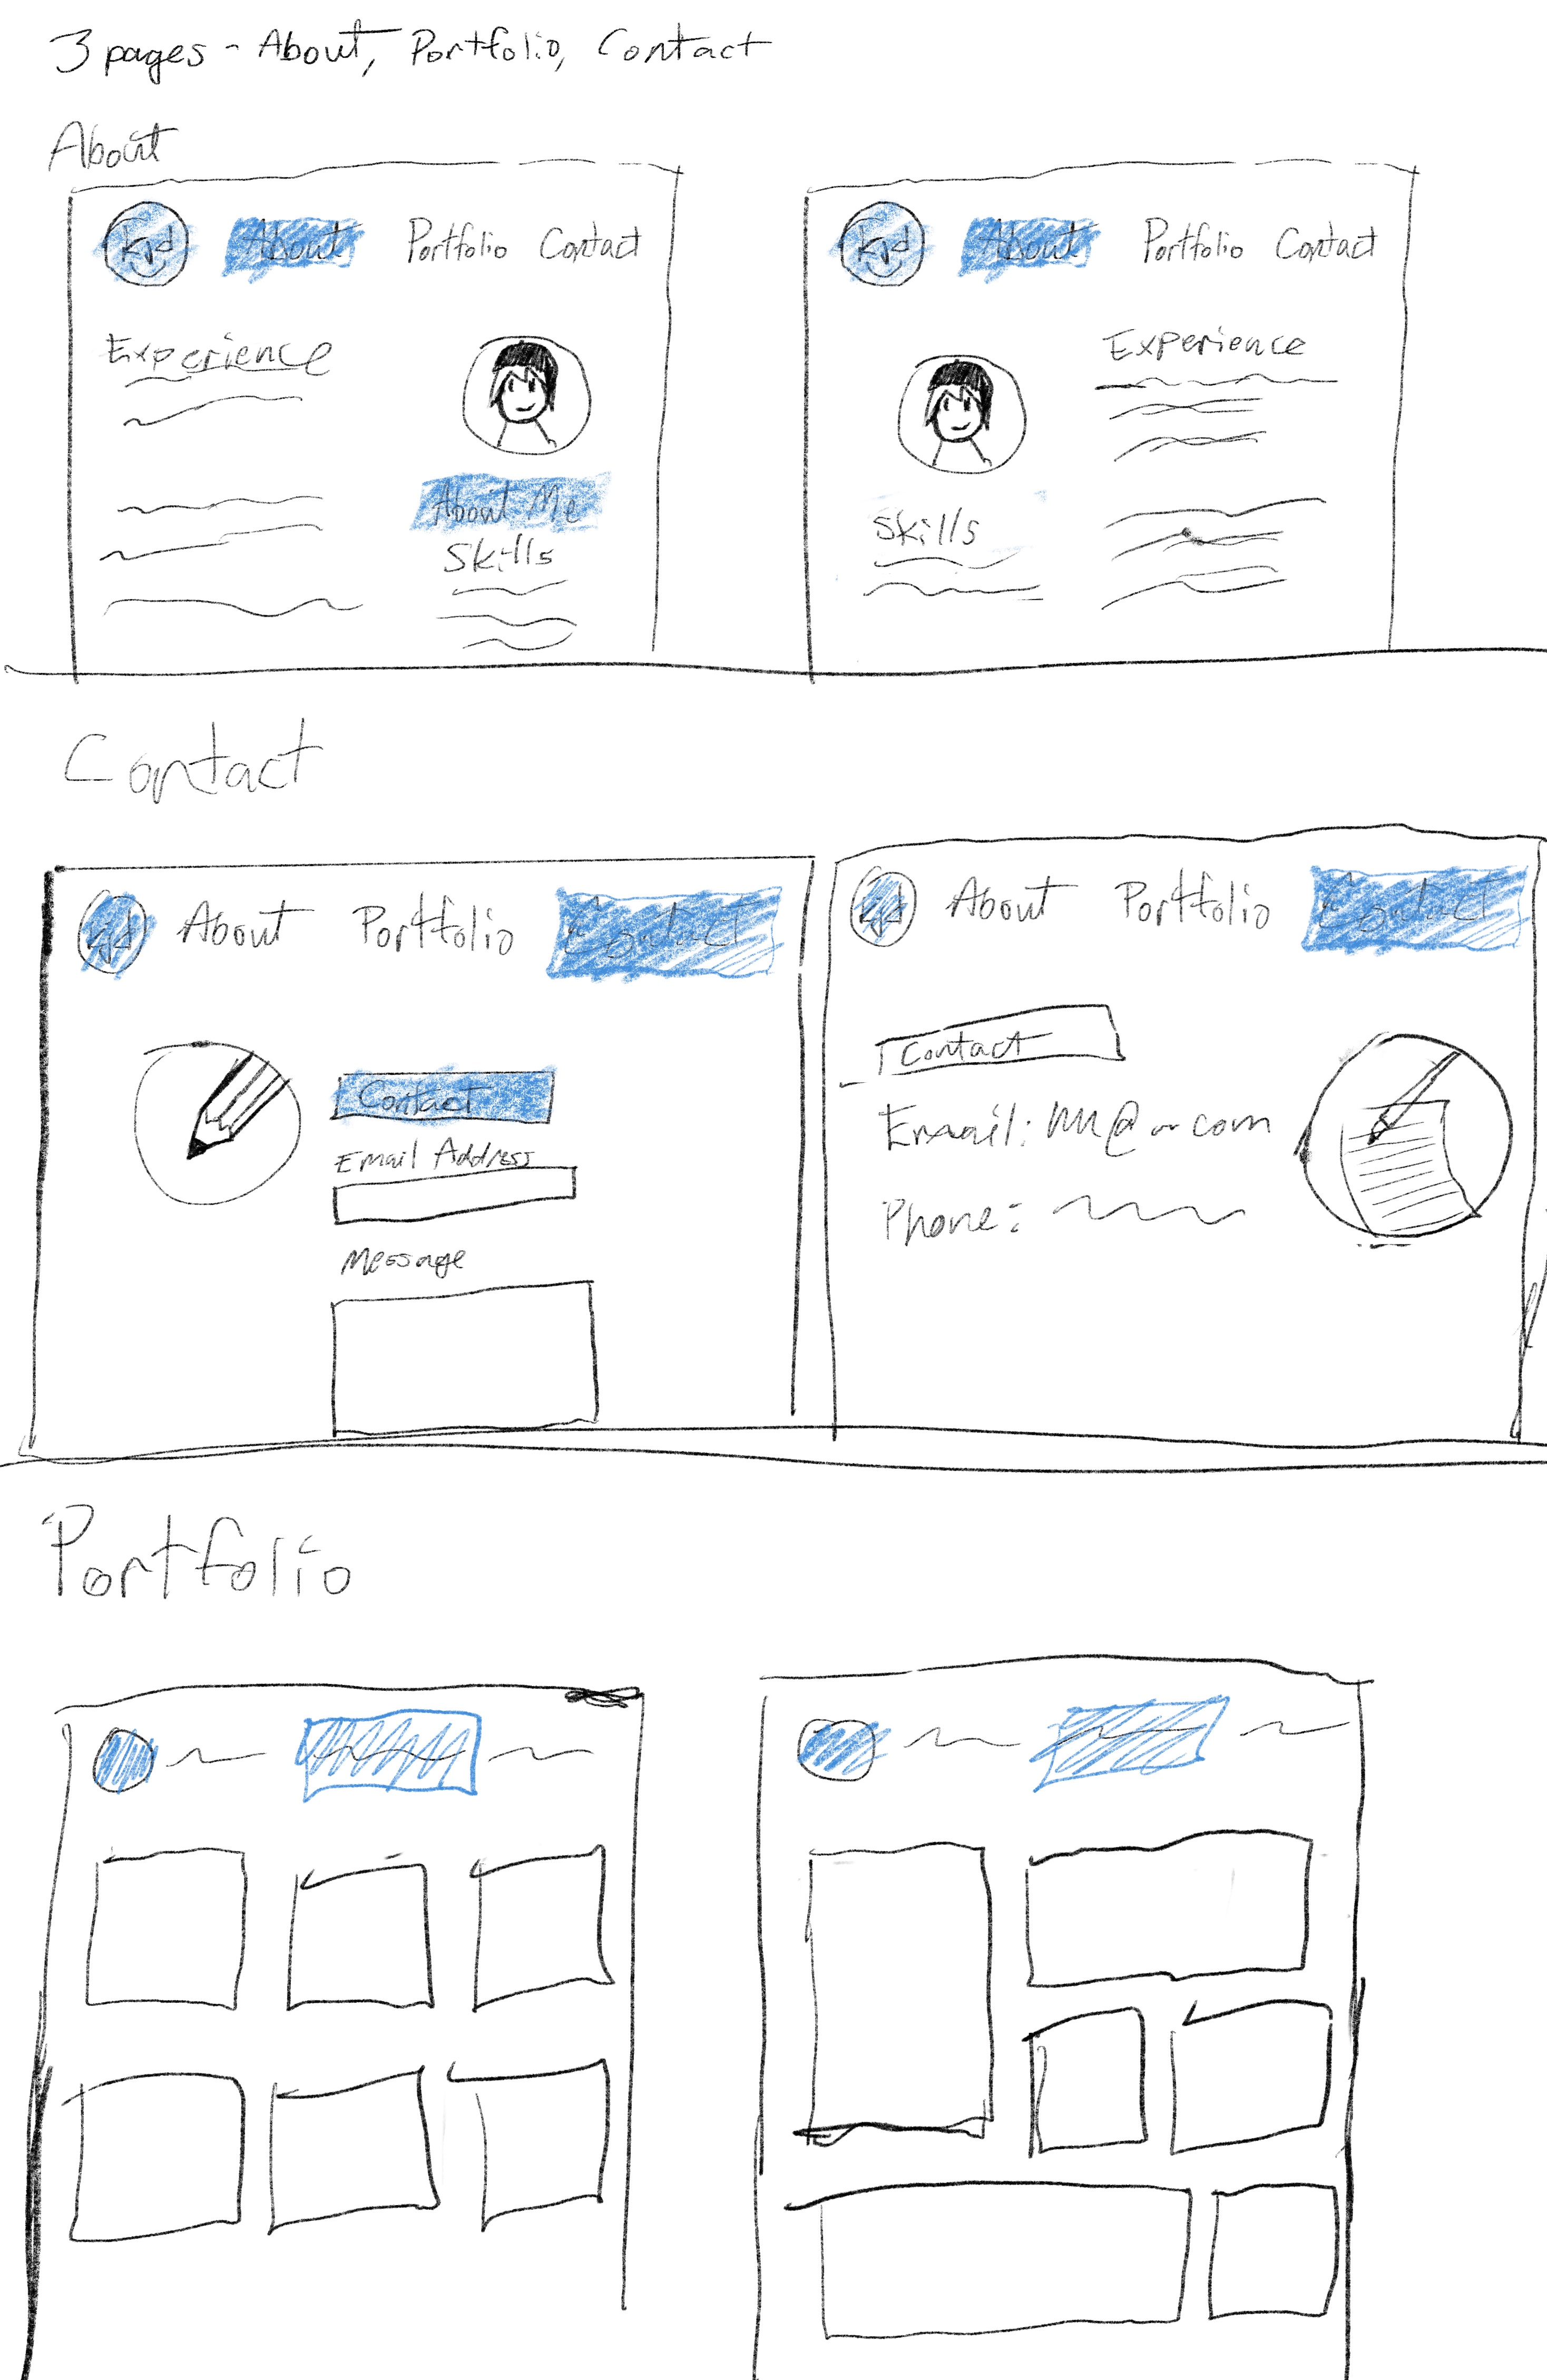 3 pages - About, Portfolio, Contact
About
About Portfolio Contact
Experience
About Me
Skills
About Portfolio Contact
Experience
Skills
Contact
About Portfolio Contact
Contact
Email Address
Message
About Portfolio Contact
Contact
Email: @ com
Phone:
Portfolio